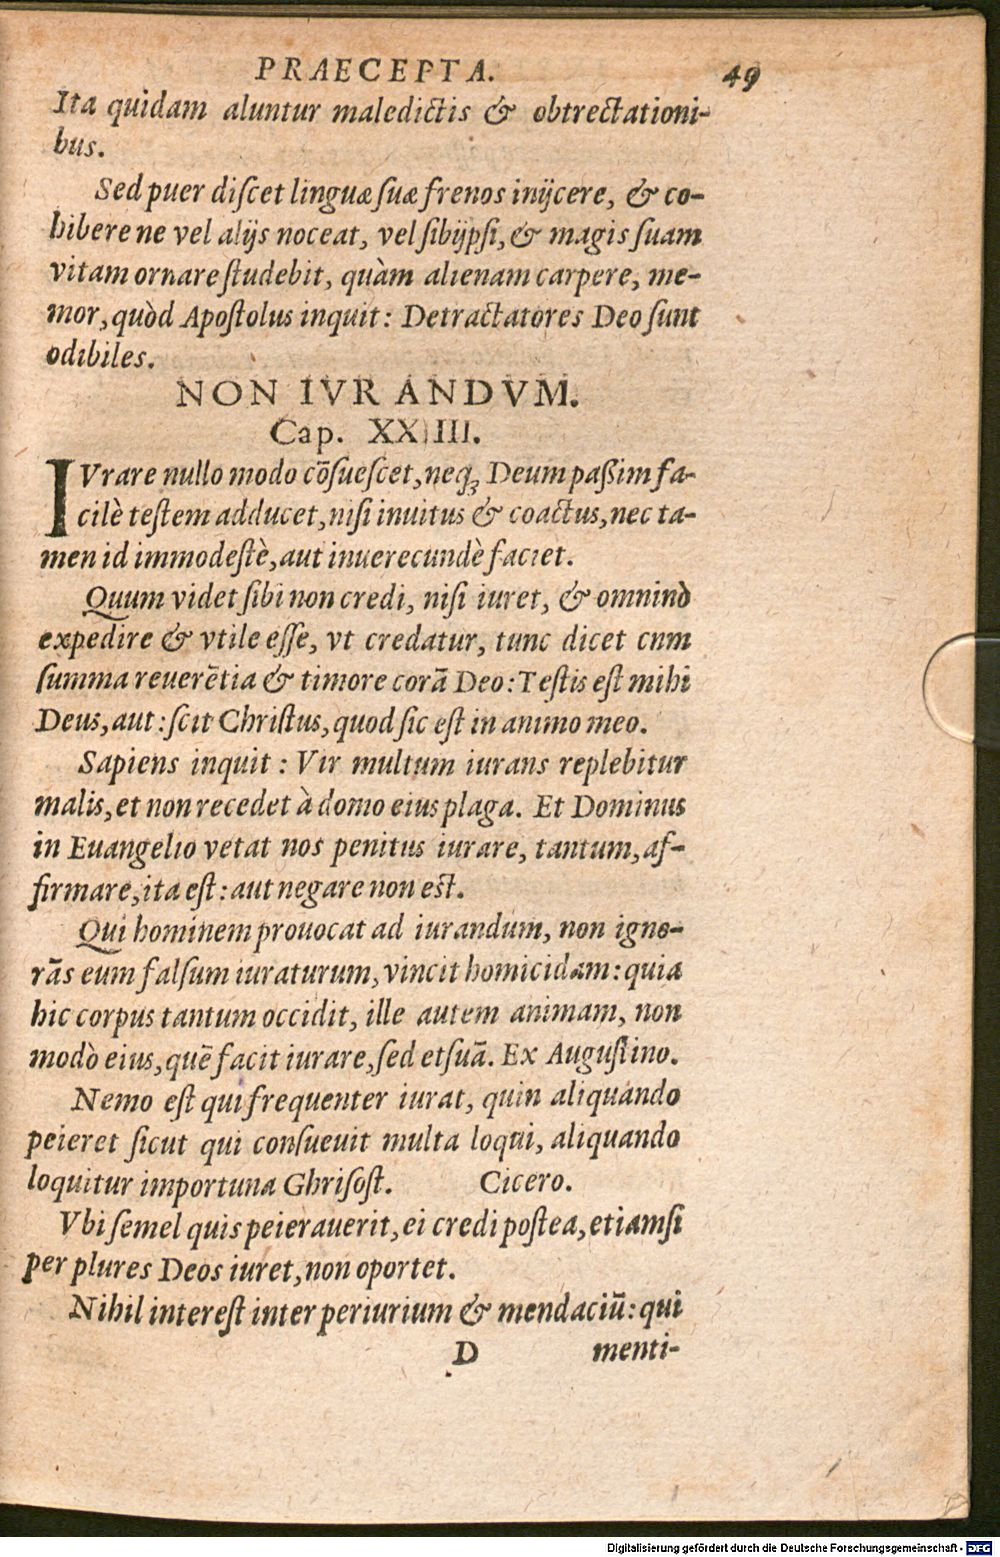 PRAECEPTA. 49
Ita quidam aluntur maledictis & obtrectationi-
bus.
Sed puer diſcet linguæ ſuæ frenos inijcere, & co-
hibere ne vel alijs noceat, vel ſibijpſi, & magis ſuam
vitam ornare ſtudebit, quàm alienam carpere, me-
mor, quòd Apoſtolus inquit: Detractatores Deo ſunt
odibiles.
NON IVRANDVM.
Cap. XXIIII.
IVrare nullo modo cōſueſcet, neq; Deum paſſim fa-
cilè teſtem adducet, niſi inuitus & coactus, nec ta-
men id immodeſtè, aut inuerecundè faciet.
Quum videt ſibi non credi, niſi iuret, & omninò
expedire & vtile eſſe, vt credatur, tunc dicet cnm
ſumma reuerētia & timore corā Deo: Teſtis eſt mihi
Deus, aut: ſcit Chriſtus, quod ſic eſt in animo meo.
Sapiens inquit: Vir multum iurans replebitur
malis, et non recedet à domo eius plaga. Et Dominus
in Euangelio vetat nos penitus iurare, tantum, af-
firmare, ita eſt: aut negare non eſt.
Qui hominem prouocat ad iurandum, non igno-
rās eum falſum iuraturum, vincit homicidam: quia
hic corpus tantum occidit, ille autem animam, non
modò eius, quē facit iurare, ſed et ſuā. Ex Auguſtino.
Nemo eſt qui frequenter iurat, quin aliquando
peieret ſicut qui conſueuit multa loqui, aliquando
loquitur importuna Ghriſoſt. Cicero.
Vbi ſemel quis peierauerit, ei credi poſtea, etiamſi
per plures Deos iuret, non oportet.
Nihil intereſt inter periurium & mendaciū: qui
D menti-
Digitalisierung gefördert durch die Deutsche Forschungsgemeinschaft - DFG